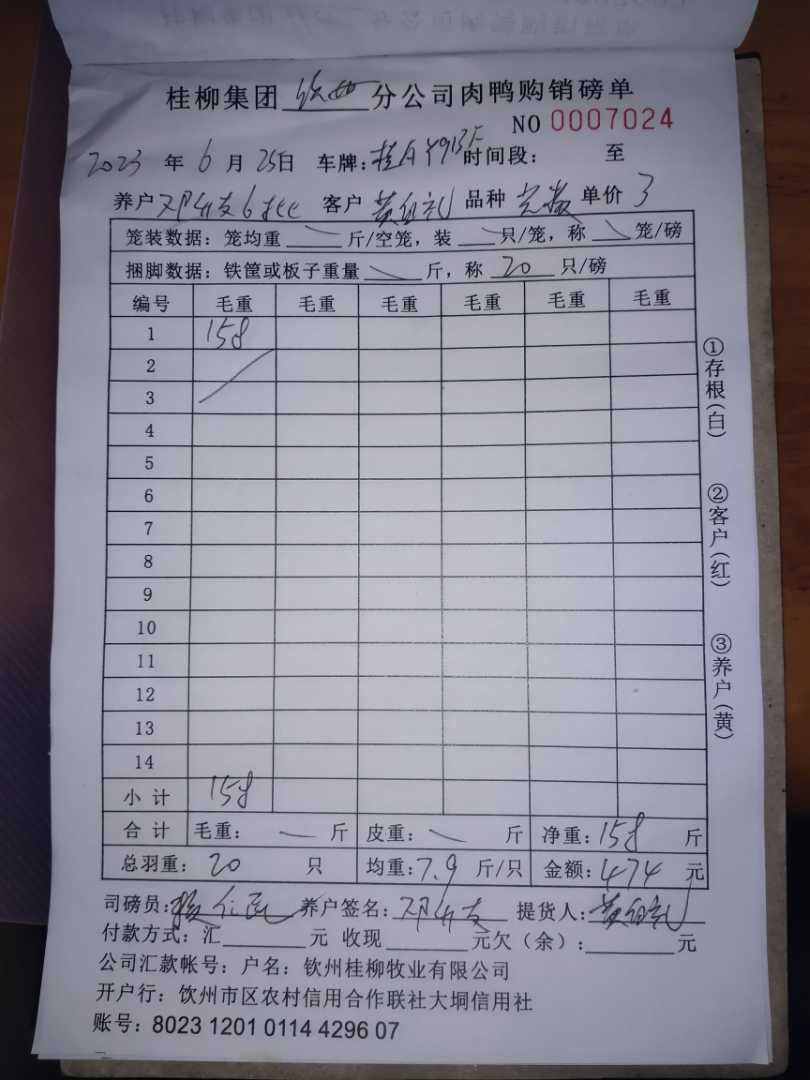 桂柳集团 钦州 分公司肉鸭购销磅单
NO 0007024
2023 年 6 月 25日 车牌: 时间段: 至
养户 邓 友 6 客户 黄 礼 品种 单价 3
笼装数据: 笼均重 斤/空笼, 装 只/笼, 称 笼/磅
捆脚数据: 铁筐或板子重量 斤, 称 20 只/磅
编号 毛重 毛重 毛重 毛重 毛重 毛重
1 158
2
3
4
5
6
7
8
9
10
11
12
13
14
小计 158
合计 毛重: 斤 皮重: 斤 净重: 158 斤
总羽重: 20 只 均重: 7.9 斤/只 金额: 474 元
司磅员: 养户签名: 邓 友 提货人: 黄 礼
付款方式: 汇 元 收现 元欠(余): 元
公司汇款帐号: 户名: 钦州桂柳牧业有限公司
开户行: 饮州市区农村信用合作联社大垌信用社
账号: 8023 1201 0114 4296 07
①存根(白)
②客户(红)
③养户(黄)